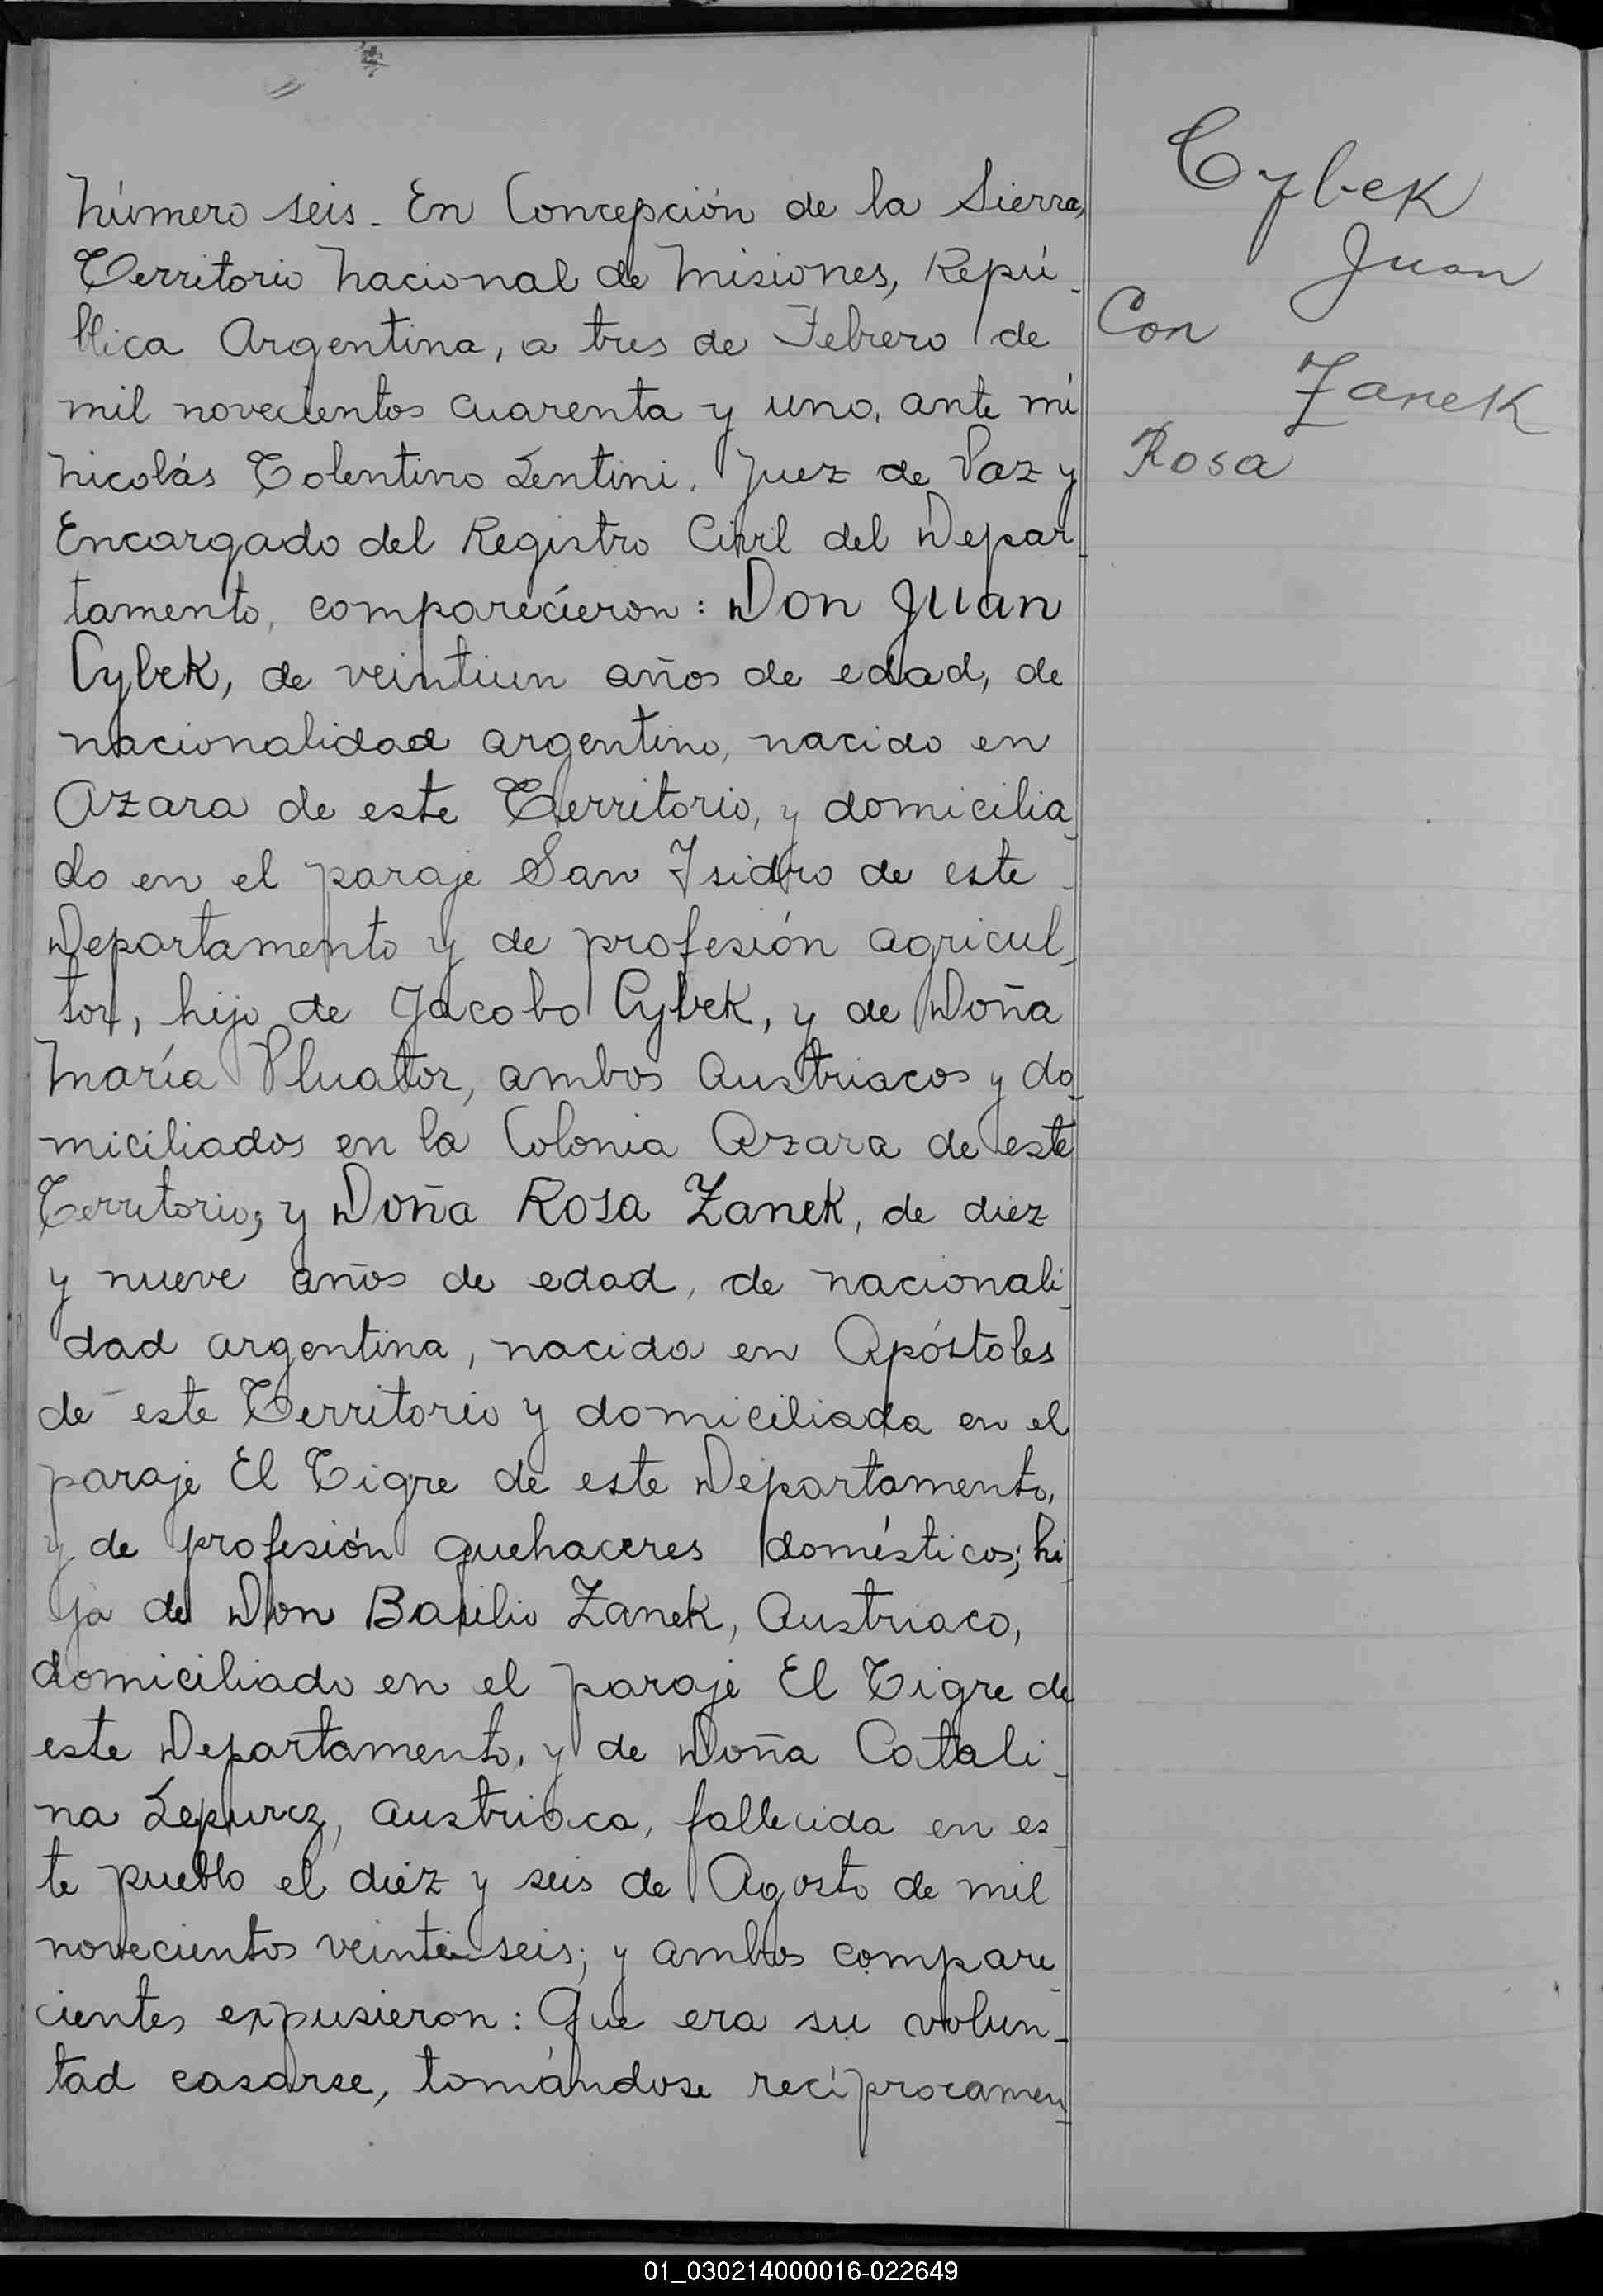 Número seis. En Concepción de la Sierra,
Territorio Nacional de Misiones, Repú-
blica Argentina, a tres de Febrero de
mil novecientos cuarenta y uno, ante mí
Nicolás Tolentino Lentini, Juez de Paz y
Encargado del Registro Civil del Depar-
tamento, comparecieron: Don Juan
Cybek, de veintiun años de edad, de
nacionalidad argentino, nacido en
Azara de este Territorio, y domicilia-
do en el paraje San Isidro de este
Departamento y de profesión agricul-
tor, hijo de Jacobo Cybek, y de Doña
María Pluator, ambos Austriacos y do-
miciliados en la Colonia Azara de este
Territorio; y Doña Rosa Zanek, de diez
y nueve años de edad, de nacionali-
dad argentina, nacida en Apóstoles
de este Territorio y domiciliada en el
paraje El Tigre de este Departamento,
y de profesión quehaceres domésticos; hi-
ja de Don Basilio Zanek, Austriaco,
domiciliado en el paraje El Tigre de
este Departamento, y de Doña Catali-
na Lepurcz, austriaca, fallecida en es-
te pueblo el diez y seis de Agosto de mil
novecientos veinteseis; y ambos compare-
cientes expusieron: Que era su volun-
tad casarse, tomándose recíprocamen-
Cybek
Juan
Con
Zanek
Rosa
01_030214000016-022649